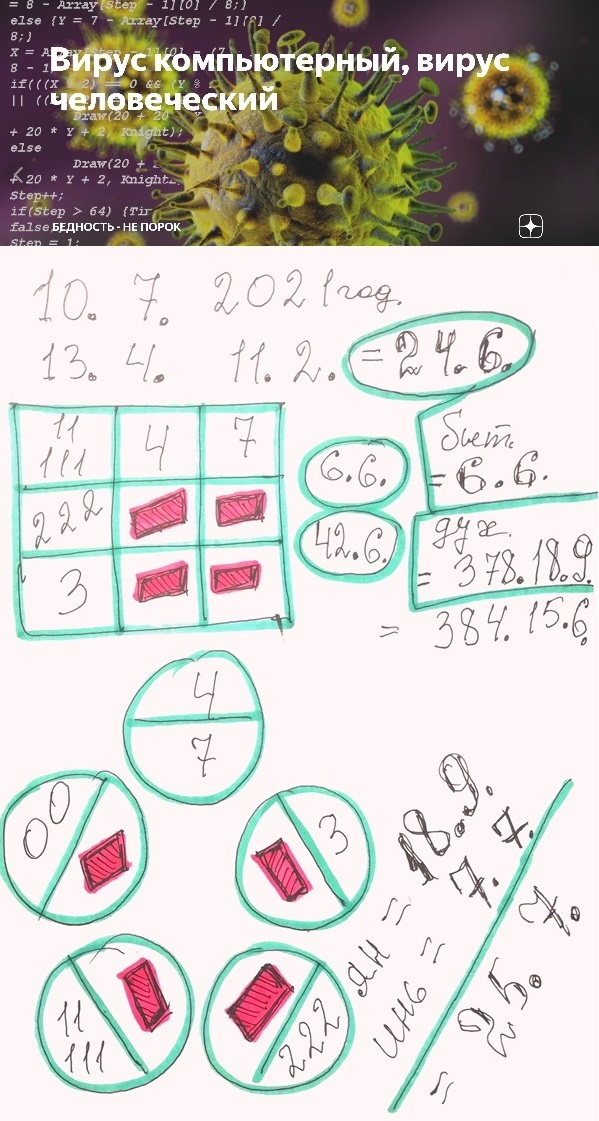 = 8 - Array[Step - 1][0] / 8;}
else {Y = 7 - Array[Step - 1][0] /
8;}
X = Array[Step - 1][0] - (7
8 - 1
if(((X % 2) == 0 && (Y %
|| ((
Draw(20 + 20 * X
+ 20 * Y + 2, Knight);
else
Draw(20 + 2
+ 20 * Y + 2, Knight2
Step++;
if(Step > 64) {Tim
false
Step = 1;
Вирус компьютерный, вирус
человеческий
БЕДНОСТЬ - НЕ ПОРОК
10. 7. 2021 год.
13. 4. 11. 2. = 24. 6.
11
111
4
7
222
3
6.6.
42.6.
= 6.6.
дух.
= 378.18.9.
= 384.15.6.
4
7
00
3
11
111
222
ЯН = 18.9.
ИНЬ = 7.7.
= 25. 7.